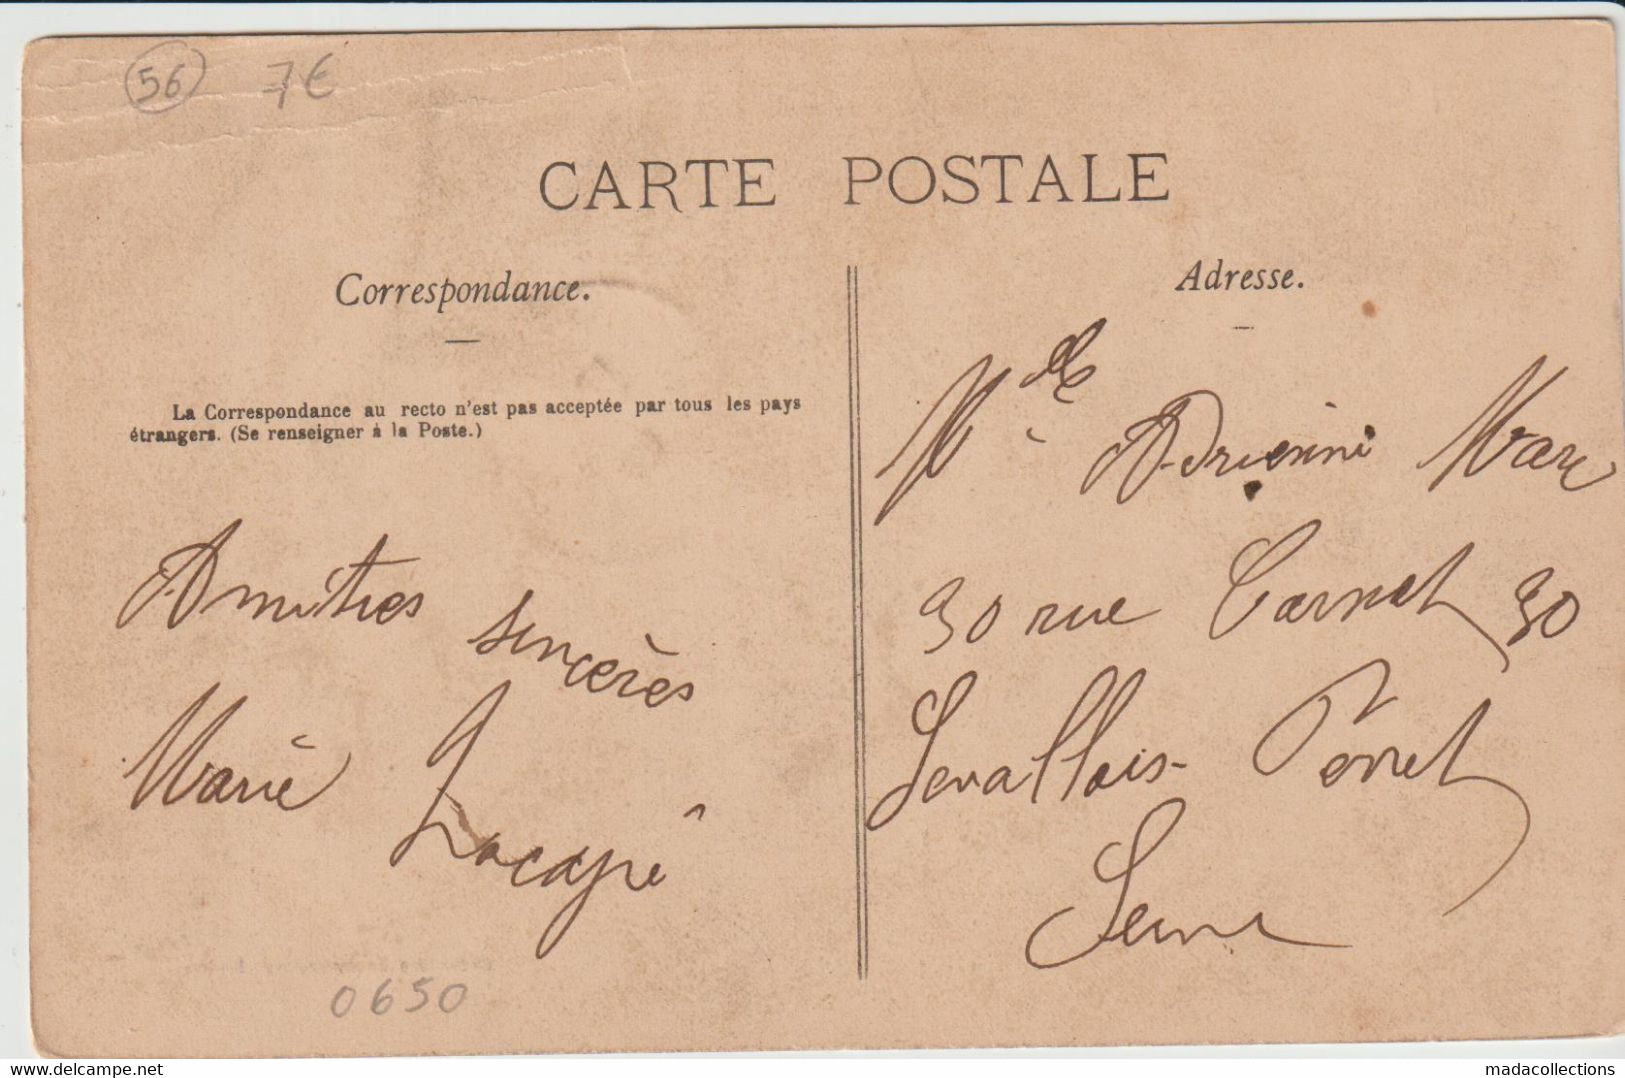 56 7€
CARTE POSTALE
Correspondance.
La Correspondance au recto n'est pas acceptée par tous les pays
étrangers. (Se renseigner à la Poste.)
Amitiés
sincères
Marie
Adresse.
Mlle Adrienne Marc
30 rue Carnot 30
Levallois-Perret
Seine
0650
madacollections